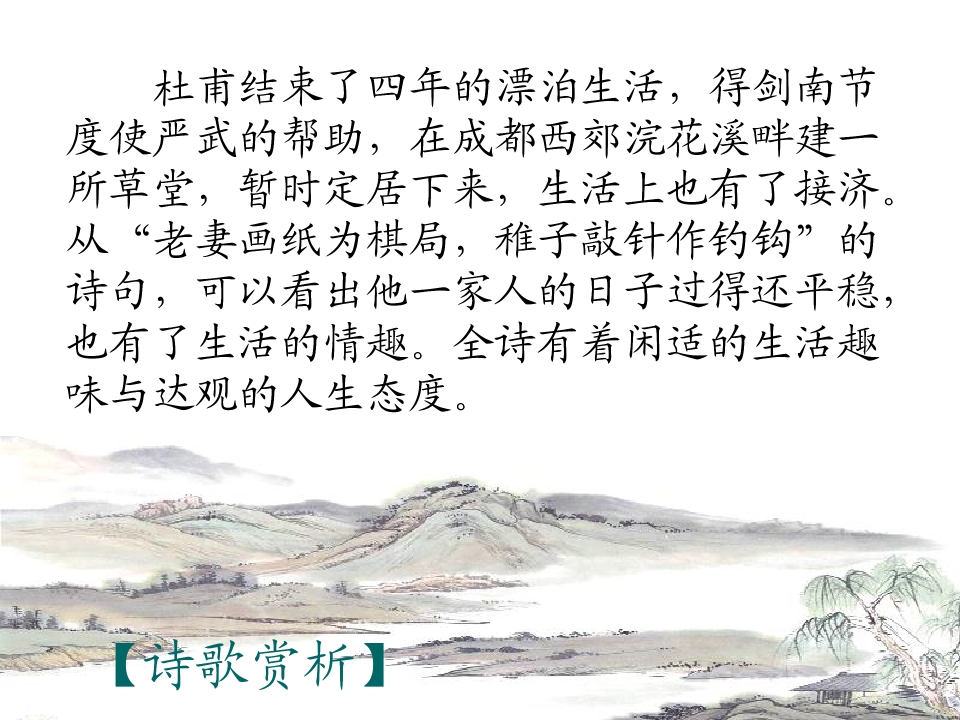 杜甫结束了四年的漂泊生活，得剑南节
度使严武的帮助，在成都西郊浣花溪畔建一
所草堂，暂时定居下来，生活上也有了接济。
从“老妻画纸为棋局，稚子敲针作钓钩”的
诗句，可以看出他一家人的日子过得还平稳，
也有了生活的情趣。全诗有着闲适的生活趣
味与达观的人生态度。
【诗歌赏析】